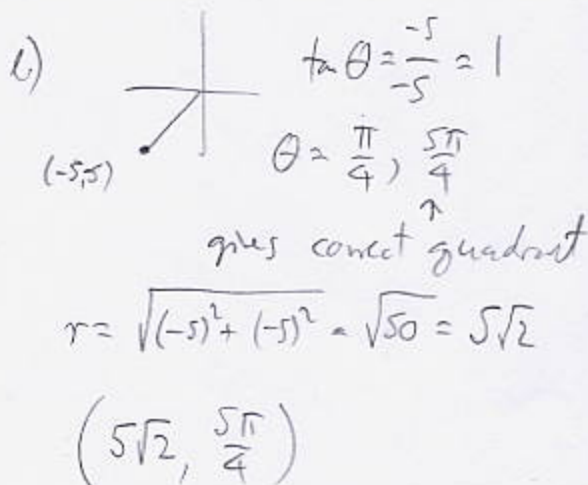 l) tan θ = -5/-5 = 1
(-5,5)
θ = π/4, 5π/4
↑
gives correct quadrant
r = √((-5)² + (-5)²) = √50 = 5√2
(5√2, 5π/4)